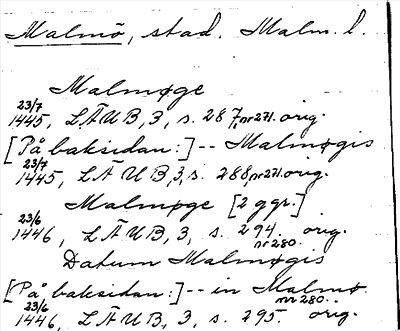 Malmö, stad. Malm. l.
Malmøge
23/7
1445, LÄUB, 3, s. 287, nr 271. orig.
[På baksidan:] -- Malmøgis
23/7
1445, LÄUB, 3, s. 288, nr 271. orig.
Malmøge [2 ggr.]
23/6
1446, LÄUB, 3, s. 294. orig.
nr 280.
Datum Malmøgis
[På baksidan:] -- in Malmø
23/6 nr 280.
1446, LÄUB, 3, s. 295. orig.